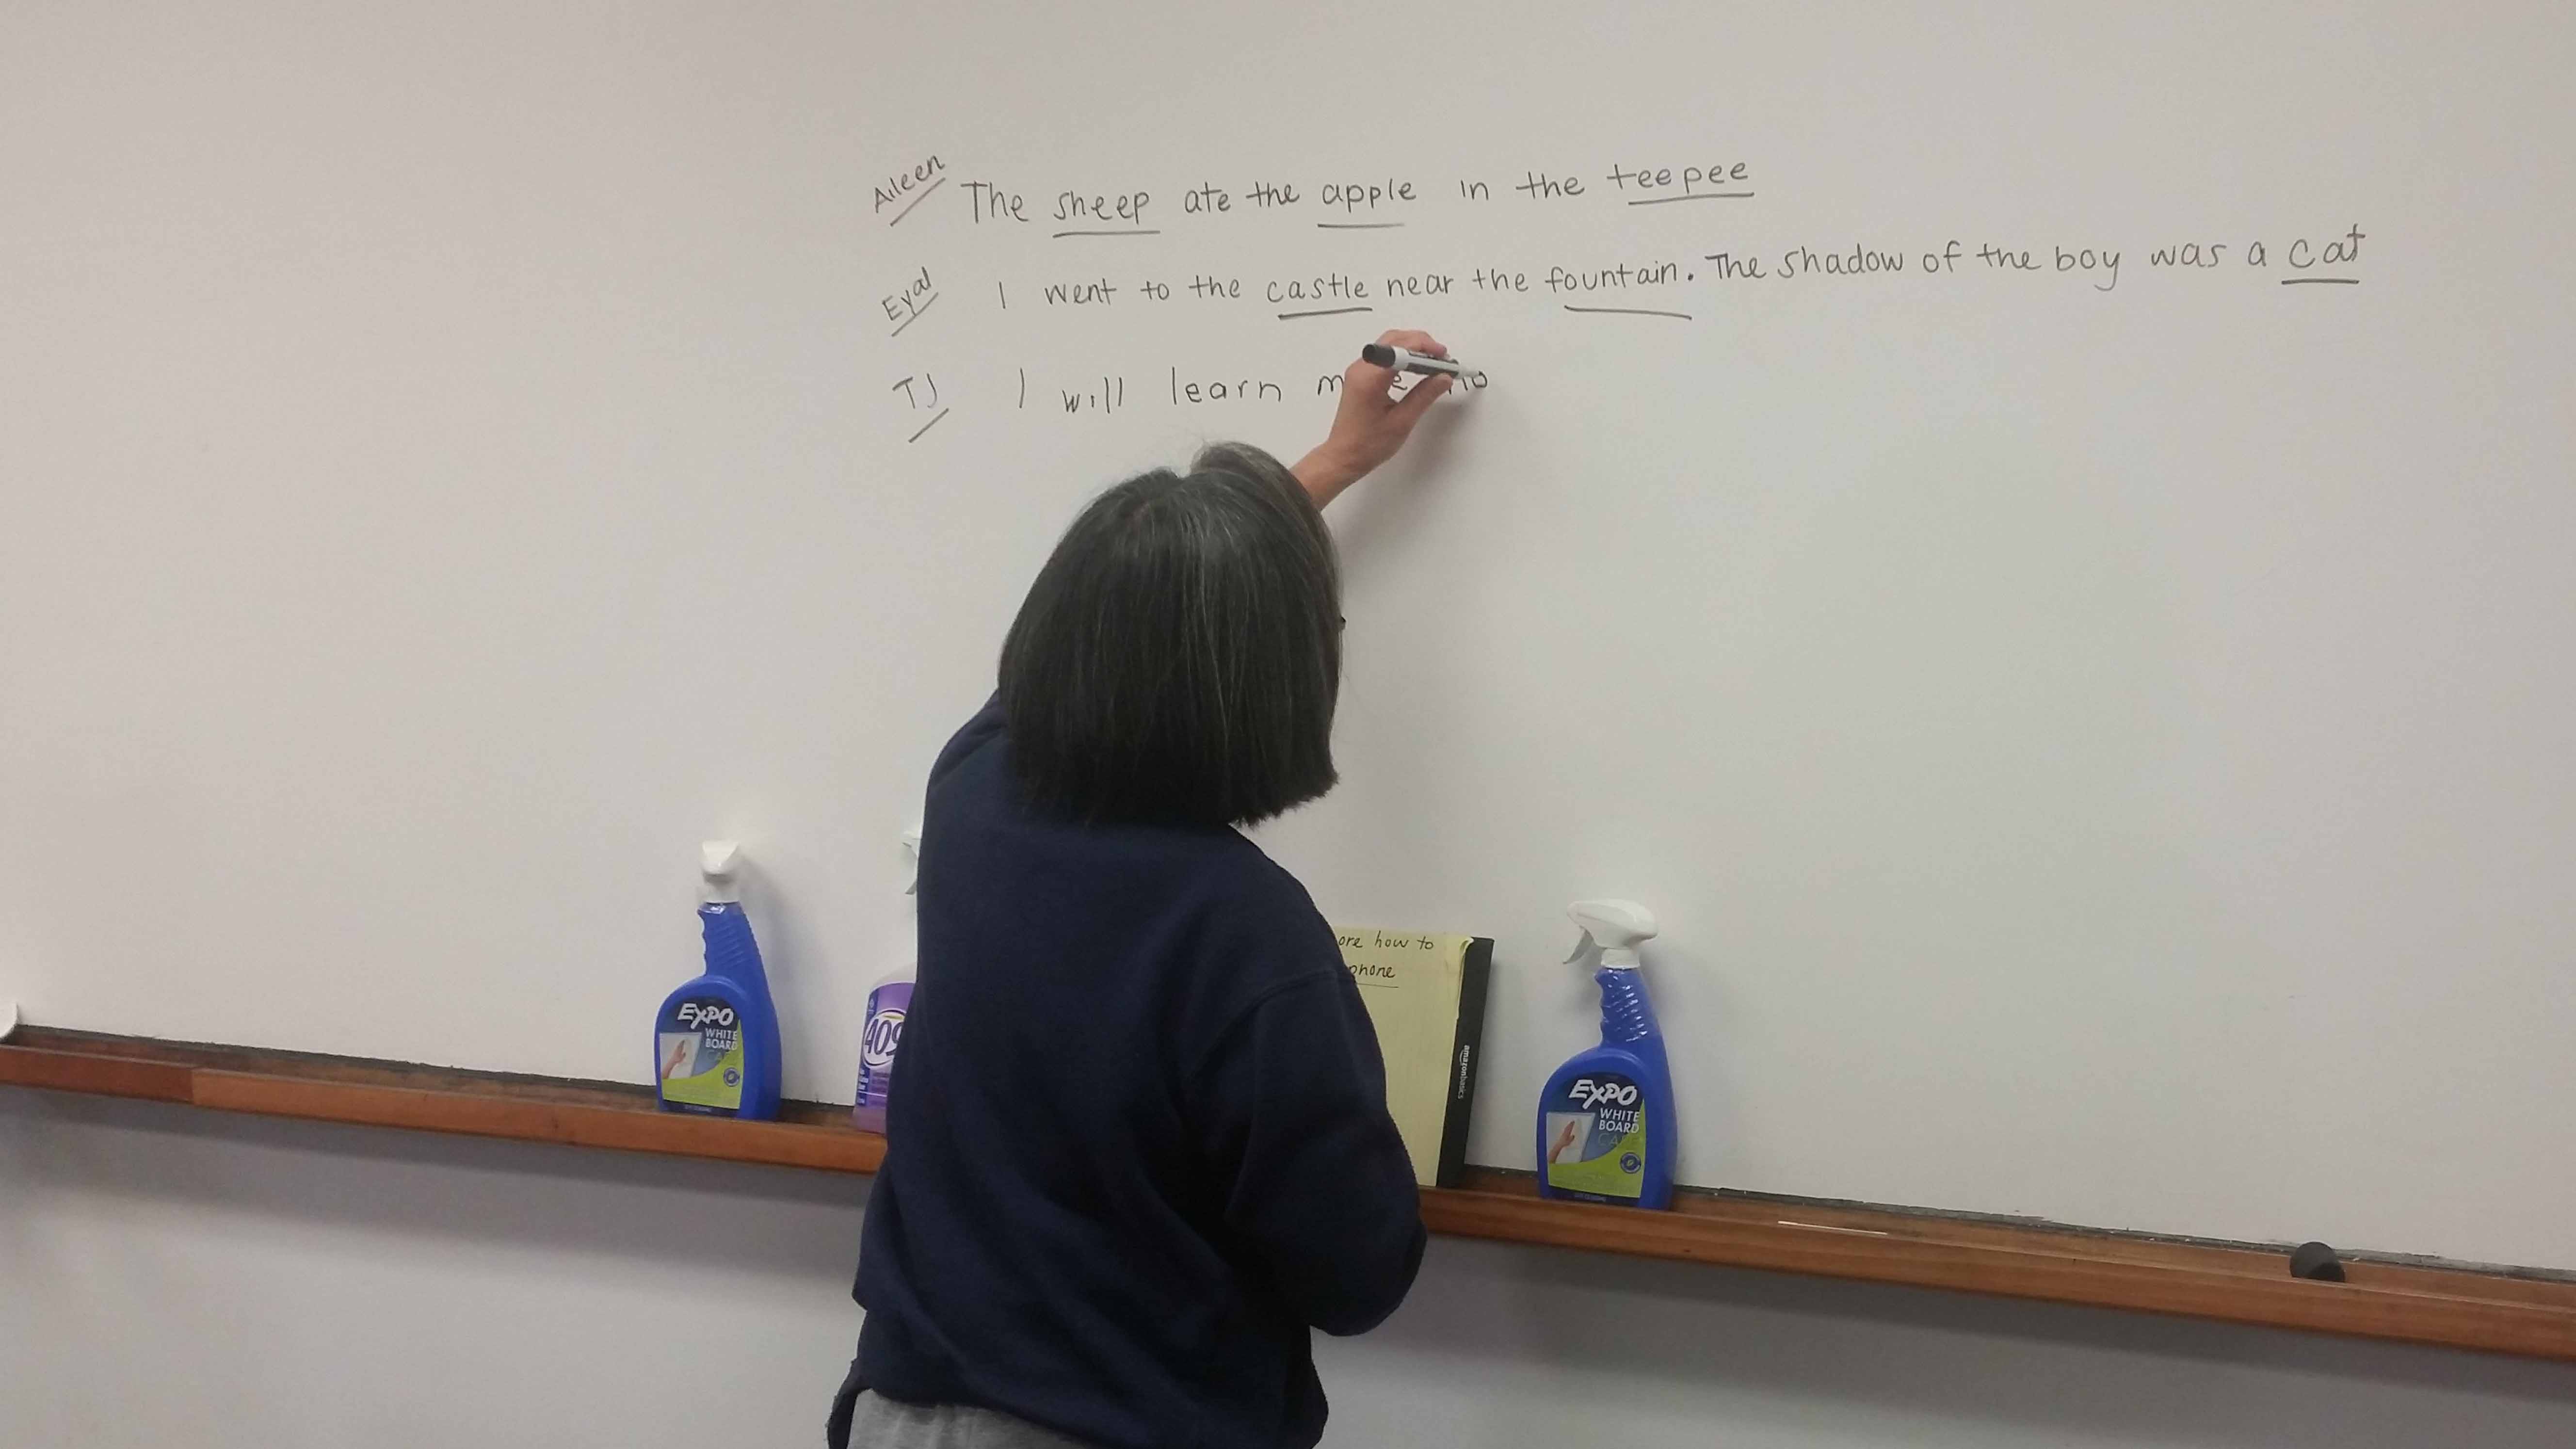 Aileen The sheep ate the apple in the teepee
Eyal I went to the castle near the fountain. The shadow of the boy was a cat
TJ I will learn
ore how to
phone
EXPO
WHITE
BOARD
CARE
409
amazonbasics
EXPO
WHITE
BOARD
CARE